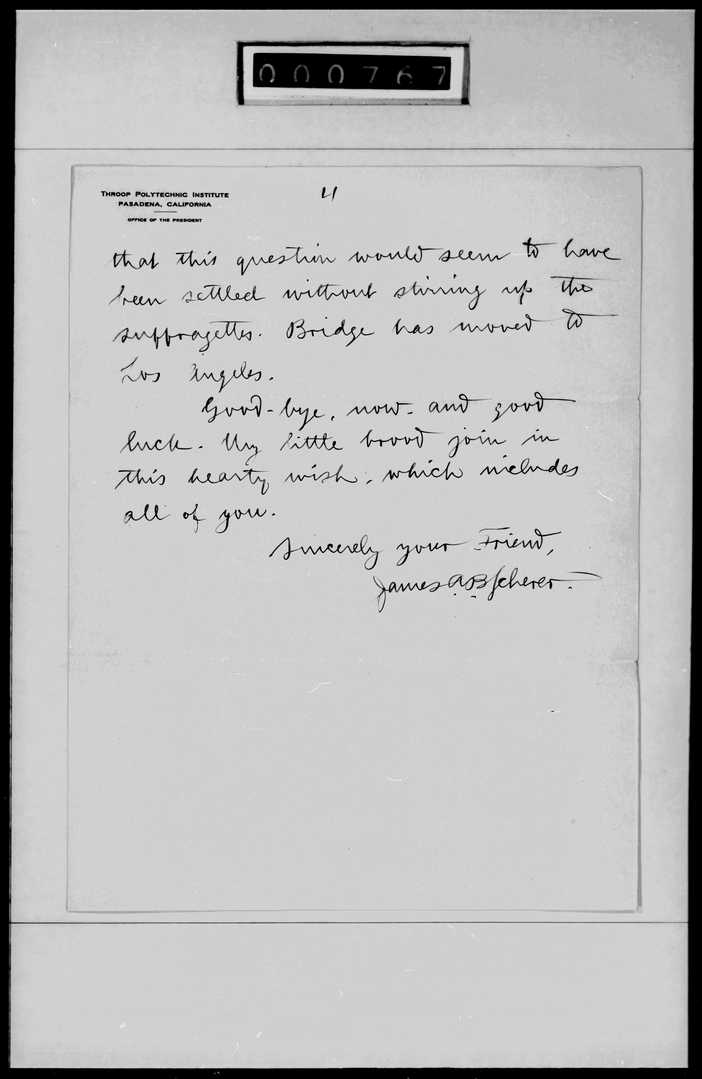 000767
THROOP POLYTECHNIC INSTITUTE
PASADENA, CALIFORNIA
OFFICE OF THE PRESIDENT
4
that this question would seem to have
been settled without stirring up the
suffragettes. Bridge has moved to
Los Angeles.
Good-bye, now - and good
luck. My little brood join in
this hearty wish, which includes
all of you.
Sincerely your Friend,
James A.B. Scherer.